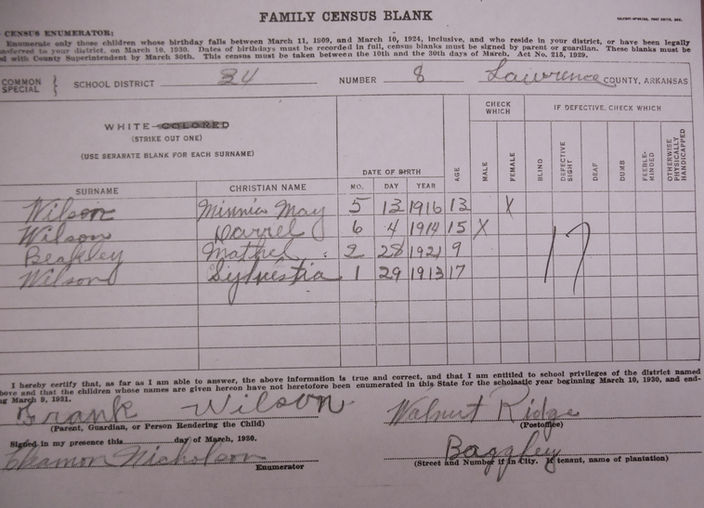 FAMILY CENSUS BLANK
CENSUS ENUMERATOR:
Enumerate only those children whose birthday falls between March 11, 1909, and March 10, 1924, inclusive, and who reside in your district, or have been legally
nsferred to your district, on March 10, 1930. Dates of birthdays must be recorded in full, census blanks must be signed by parent or guardian. These blanks must be
d with County Superintendent by March 30th. This census must be taken between the 10th and the 30th days of March. Act No. 215, 1929.
COMMON
SPECIAL } SCHOOL DISTRICT 34 NUMBER 8 Lawrence COUNTY, ARKANSAS
WHITE—COLORED
(STRIKE OUT ONE)
(USE SEPARATE BLANK FOR EACH SURNAME)
CHECK WHICH
IF DEFECTIVE, CHECK WHICH
DATE OF BIRTH
SURNAME CHRISTIAN NAME NO. DAY YEAR AGE MALE FEMALE BLIND DEFECTIVE SIGHT DEAF DUMB FEEBLE-MINDED OTHERWISE PHYSICALLY HANDICAPPED
Wilson Minnie May 5 13 1916 13 X
Wilson Darrel 6 4 1914 15 X
Beakley 2 28 1921 9
Wilson Sylvestia 1 29 1913 17
17
I hereby certify that, as far as I am able to answer, the above information is true and correct, and that I am entitled to school privileges of the district named
above and that the children whose names are given hereon have not heretofore been enumerated in this State for the scholastic year beginning March 10, 1930, and end-
ing March 9, 1931.
Frank Wilson Walnut Ridge
(Parent, Guardian, or Person Rendering the Child) (Postoffice)
Signed in my presence this day of March, 1930.
Nicholson
Enumerator (Street and Number if in City. If tenant, name of plantation)